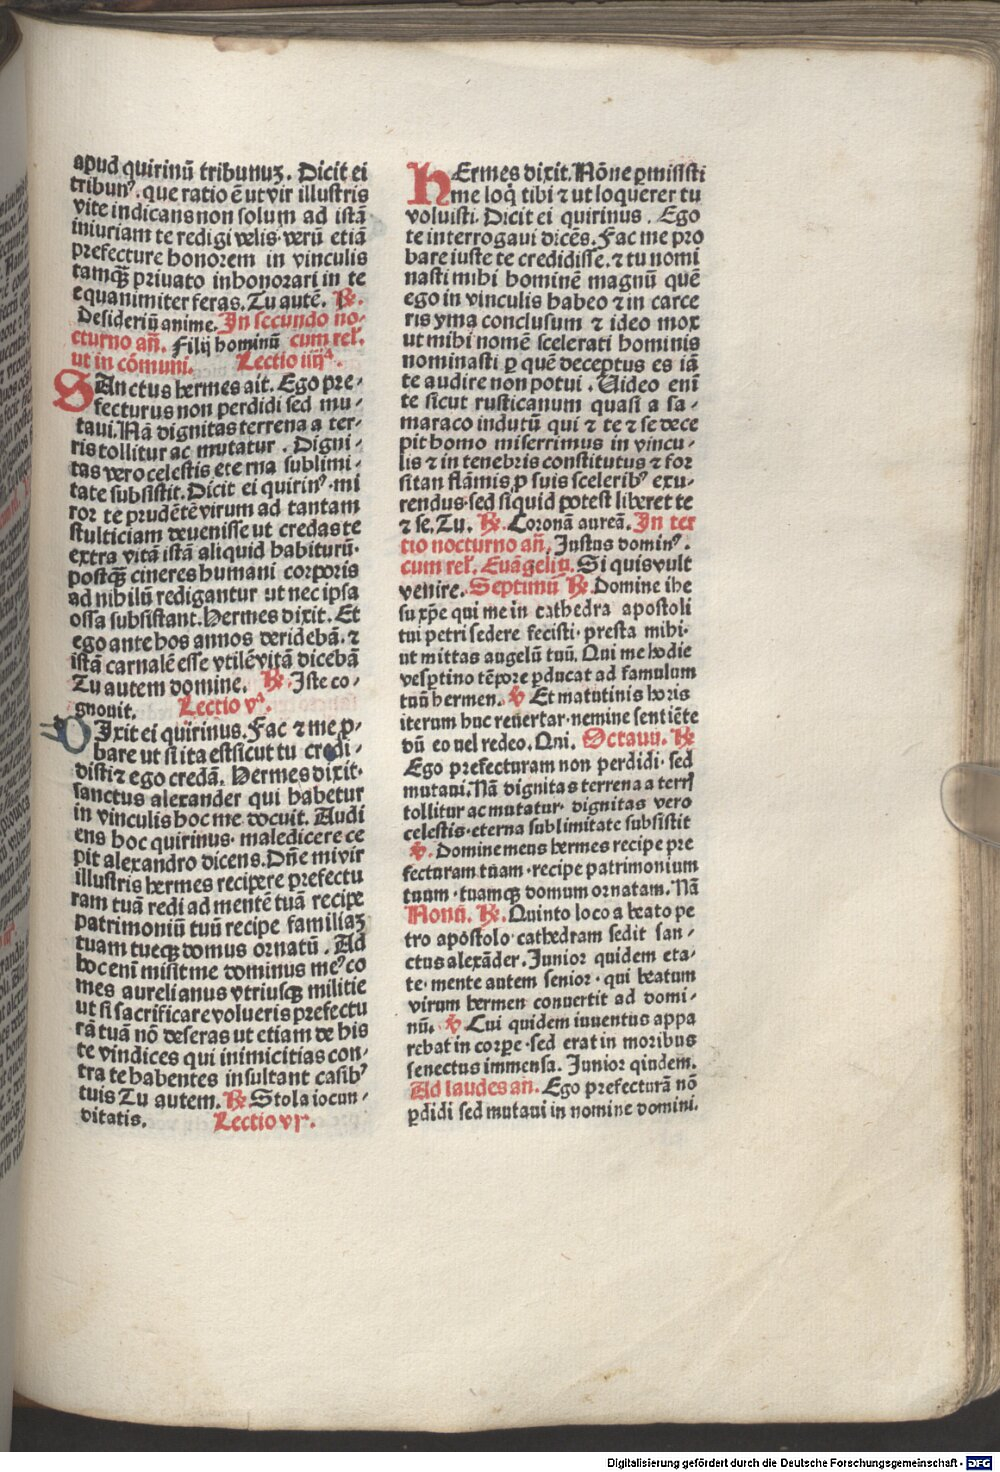 apud quirinū tribunuꝫ. Dicit ei
tribunꝰ. que ratio ē ut vir illustris
vite indicans non solum ad istā
iniuriam te redigi velis. verū etiā
prefecture honorem in vinculis
tamqꝫ priuato inhonorari in te
equanimiter feras. Tu autē. ℞.
Desideriū anime. In secundo no⸗
cturno añ. Filij hominū cum rel̄.
ut in cōmuni. Lectio iiijᵃ.
SAnctus hermes ait. Ego pre⸗
fecturus non perdidi sed mu⸗
taui. Nā dignitas terrena a ter⸗
ris tollitur ac mutatur. Digni⸗
tas vero celestis eterna sublimi⸗
tate subsistit. Dicit ei quirinꝰ. mi
ror te prudētē virum ad tantam
stulticiam deuenisse ut credas te
extra vitā istā aliquid habiturū.
postqꝫ cineres humani corporis
ad nihilū redigantur ut nec ipsa
ossa subsistant. Hermes dixit. Et
ego ante hos annos deridebā. ⁊
istā carnalē esse vtilē vitā dicebā
Tu autem domine. ℞. Iste co⸗
gnouit. Lectio vᵃ.
DIxit ei quirinus. Fac ⁊ me ꝓ⸗
bare ut si ita est sicut tu credi⸗
disti ⁊ ego credā. Hermes dixit.
sanctus alexander qui habetur
in vinculis hoc me docuit. Audi
ens hoc quirinus. maledicere ce
pit alexandro dicens. Dñe mi vir
illustris hermes recipere prefectu
ram tuā redi ad mentē tuā recipe
patrimoniū tuū recipe familiaꝫ
tuam tueqꝫ domus ornatū. Ad
hoc eni̅ misit me dominus meꝰ co
mes aurelianus vtriusqꝫ militie
ut si sacrificare volueris prefectu
rā tuā nō deseras ut etiam de his
te vindices qui inimicitias con⸗
tra te habentes insultant casibꝰ
tuis Tu autem. ℞. Stola iocun⸗
ditatis. Lectio vjᵃ.
hErmes dixit. Nōne ꝑmisisti
me loq̄ tibi ⁊ ut loquerer tu
voluisti. Dicit ei quirinus. Ego
te interrogaui dicēs. Fac me pro
bare iuste te credidisse. ⁊ tu nomi
nasti mihi hominē magnū quē
ego in vinculis habeo ⁊ in carce
ris yma conclusum ⁊ ideo mox
ut mihi nomē scelerati hominis
nominasti ꝑ quē deceptus es iā
te audire non potui. Video eni̅
te sicut rusticanum quasi a sa⸗
maraco indutū qui ⁊ te ⁊ se dece
pit homo miserrimus in vincu⸗
lis ⁊ in tenebris constitutus ⁊ for
sitan flāmis ꝓ suis sceleribꝰ exu⸗
rendus. sed si quid potest liberet te
⁊ se. Tu. ℞. Coronā aureā. In ter
tio nocturno añ. Iustus dominꝰ.
cum rel̄. Euāgeliū. Si quis vult
venire. Septimū ℞. Domine ihe
su xp̄e qui me in cathedra apostoli
tui petri sedere fecisti. presta mihi.
ut mittas angelū tuū. Qui me hodie
vesꝑtino tēpore ꝑducat ad famulum
tuū hermen. ℣ Et matutinis horis
iterum huc reuertar. nemine sentiēte
dū eo uel redeo. Qni. Octauū. ℞
Ego prefecturam non perdidi. sed
mutaui. Nā dignitas terrena a terrꝭ
tollitur ac mutatur. dignitas vero
celestis. eterna sublimitate subsistit
℣. Domine meus hermes recipe pre
fecturam tuam. recipe patrimonium
tuum. tuamqꝫ domum ornatam. Nā
Nonū. ℞. Quinto loco a beato pe
tro apostolo cathedram sedit san⸗
ctus alexāder. Iunior quidem eta⸗
te. mente autem senior. qui beatum
virum hermen conuertit ad domi⸗
nū. ℣ Cui quidem iuuentus appa
rebat in corpe. sed erat in moribus
senectus immensa. Iunior quidem.
Ad laudes añ. Ego prefecturā nō
ꝑdidi sed mutaui in nomine domini.
Digitalisierung gefördert durch die Deutsche Forschungsgemeinschaft - DFG